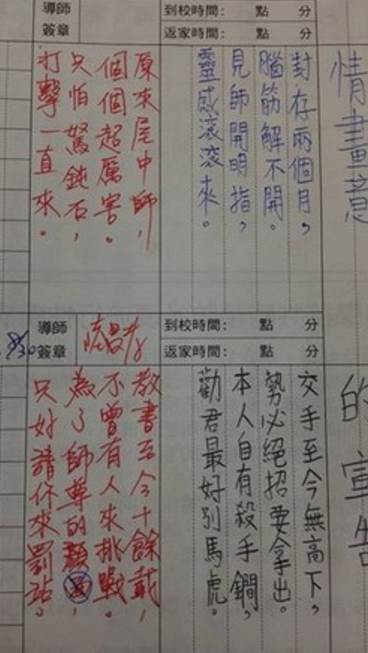 情畫意
到校時間： 點 分
返家時間： 點 分
封存兩個月，
腦筋解不開。
見師開明指，
靈感滾滾來。
導師
簽章
原來尾中師，
個個超厲害。
只怕駑鈍石，
打擊一直來。
的宣告
到校時間： 點 分
返家時間： 點 分
交手至今無高下，
勢必絕招要拿出。
本人自有殺手鐧，
勸君最好別馬虎。
導師
簽章
教書至今十餘載，
不曾有人來挑戰。
為了師尊的
只好請你來罰站。